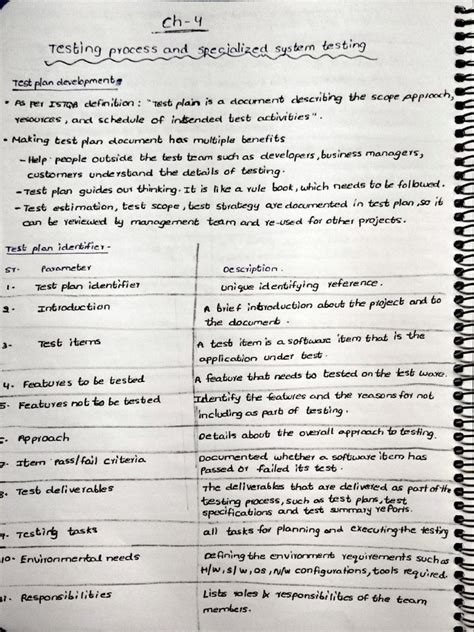 Ch-4
Testing process and specialized system testing
Test plan development:
• As per ISTQB definition : "Test plain is a document describing the scope approach,
resources, and schedule of intended test activities".
• Making test plan document has multiple benefits
- Help people outside the test team such as developers, business managers,
customers understand the details of testing.
- Test plan guides our thinking. It is like a rule book, which needs to be followed.
- Test estimation, test scope, best strategy are documented in test plan, so it
can be reviewed by management team and re-used for other projects.
Test plan identifier -
Sr. Parameter Description.
1. Test plan identifier unique identifying reference.
2. Introduction A brief introduction about the project and to
the document.
3. Test items A test item is a software item that is the
application under test.
4. Features to be tested A feature that needs to tested on the test ware.
5. Features not to be tested Identify the features and the reasons for not
including as part of testing.
Approach Details about the overall approach to testing.
7. Item pass/fail criteria Documented whether a software item has
passed or failed its test.
8. Test deliverables The deliverables that are delivered as part of the
testing process, such as test plans, test
specifications and test summary reports.
9. Testing tasks all tasks for planning and executing the testing
10. Environmental needs Defining the environment requirements such as
H/w, s/w, os, N/w configurations, tools required.
11. Responsibilities Lists roles & responsibilities of the team
members.